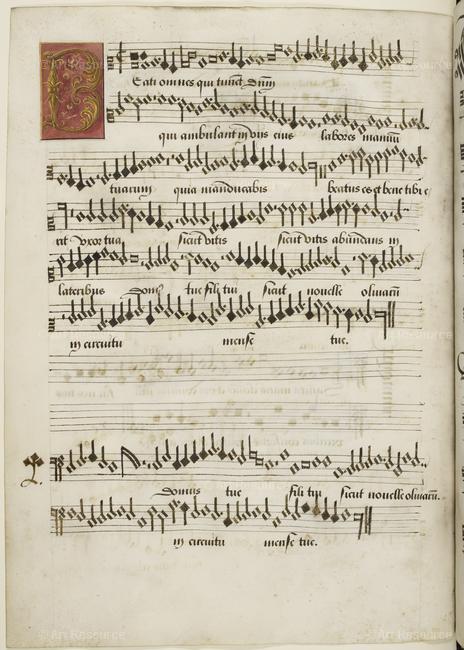 Beati omnes qui timēt Dn̄m
qui ambulant in viis eius labores manuū
tuarum quia manducabis beatus es et bene tibi e
rit Vxor tua, sicut vitis sicut vitis abundans in
lateribus Domꝰ tue fili tui sicut nouelle oliuarū
in circuitu mense tue.
Domus tue fili tui sicut nouelle oliuarū.
in circuitu mense tue.
© Art Resource
© Art Resource
© Art Resource